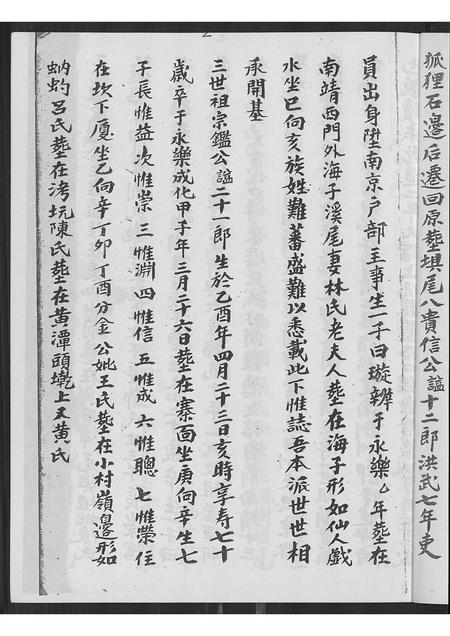 狐狸石邊后遷回原塟垻尾八貴信公諡十二郎洪武七年吏
員出身陞南京户部主事生一子曰璇辤于永樂乙年塟在
南靖西門外海子溪尾妻林氏老夫人塟在海子形如仙人戱
水坐巳向亥族姓難蕃盛難以悉載此下惟誌吾本派世世相
承開基
三世祖宗鑑公諡二十一郎生於乙酉年四月二十三日亥時享寿七十
歲卒于永樂成化甲子年三月二十六日塟在寨面坐庚向辛生七
子長惟益次惟崇三惟淵四惟信五惟成六惟聰七惟榮住
在坎下厦坐乙向辛丁卯丁酉分金公妣王氏塟在小村嶺邊形如
蚋蚼呂氏塟在洘坑陳氏塟在黄潭頭墘上又黄氏